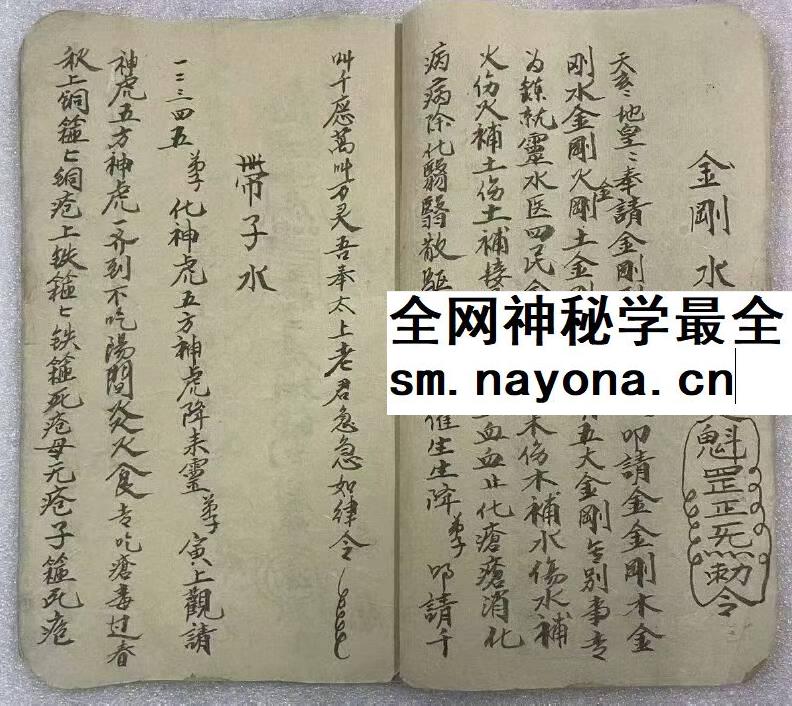 金剛水
魁罡正炁勅令
天皇〻地皇〻奉請金剛
叩請金金剛木金
剛水金剛火金剛土金剛
五大金剛無別事專
为鍊就靈水医四民
木伤木補水傷水補
火伤火補土伤土補接
血血止化瘡瘡消化
病病除化翳翳散驅
催生生降弟子叩請千
叫千應萬叫万灵吾奉太上老君急急如律令
帶子水
一二三四五弟子化神虎五方神虎降来靈弟子寅上觀請
神虎五方神虎一齐到不吃陽間炎火食专吃瘡毒过春
秋上铜箍〻铜疮上铁箍〻铁箍死疮母无疮子箍死疮
全网神秘学最全
sm.nayona.cn